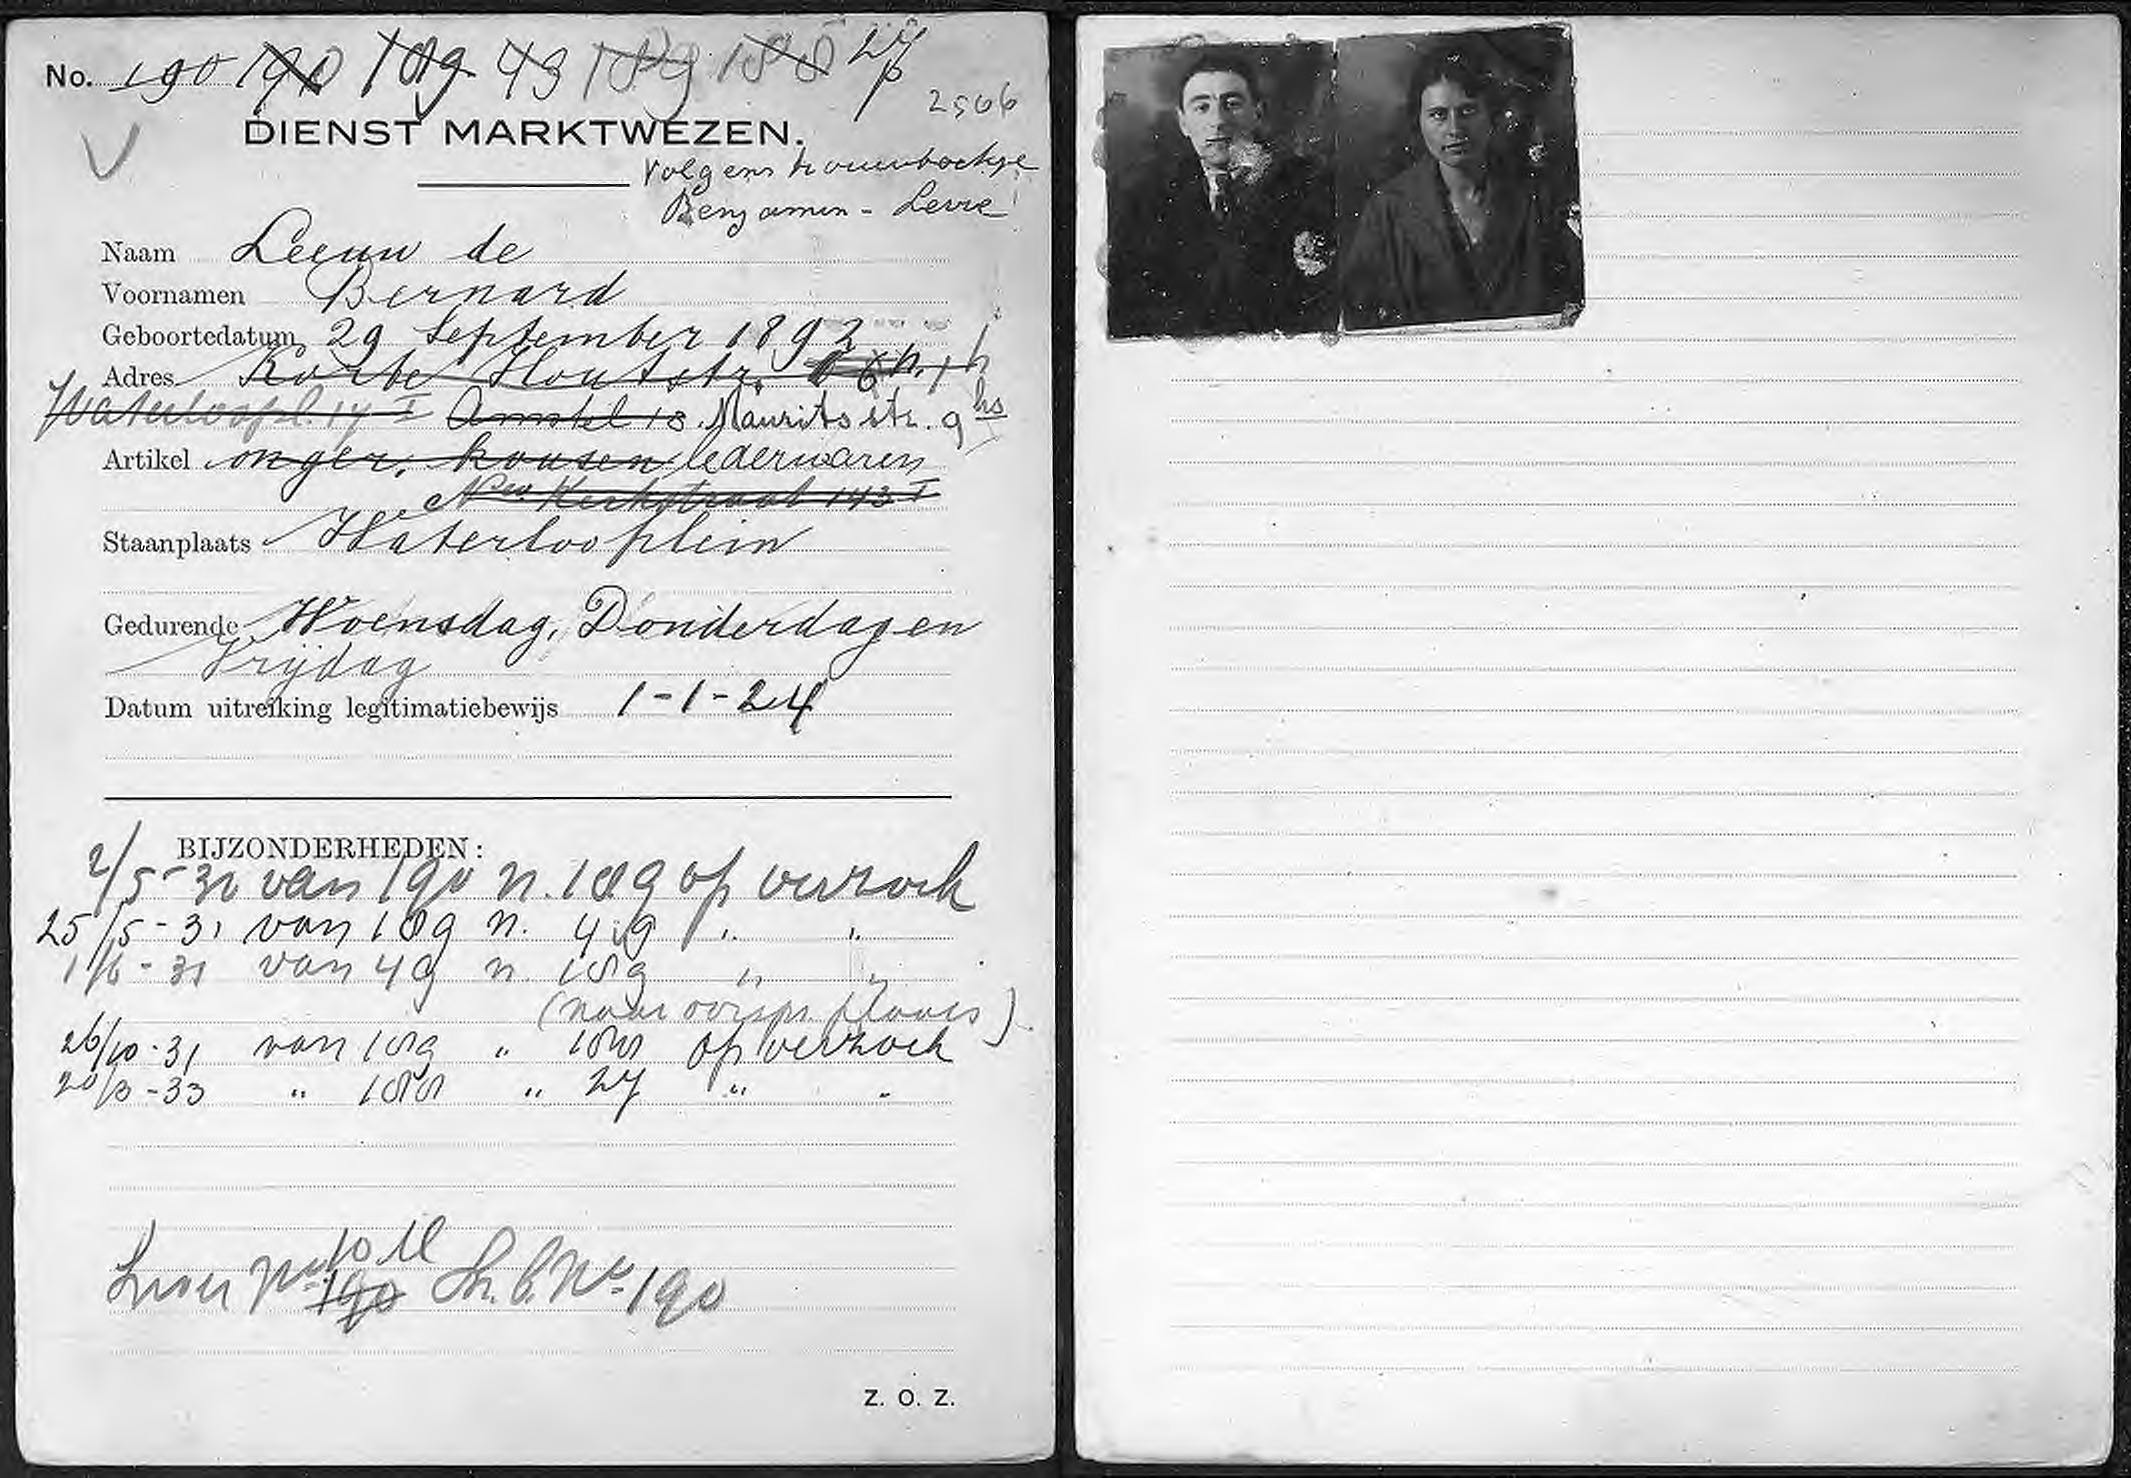 No. 190 190 189 49 189 188 27
2506
DIENST MARKTWEZEN.
Volgens trouwboekje
Benjamin - Levie
Naam Leeuw de
Voornamen Bernard
Geboortedatum 29 September 1892
Adres Korte Houtstr. 6 h
Waterloopl. 17 I Amstel 18 Maurits str. 9 hs
Artikel onger. kousen lederwaren
Nwe Kerkstraat 143 I
Staanplaats Waterlooplein
Gedurende Woensdag, Donderdag en
Vrijdag
Datum uitreiking legitimatiebewijs 1-1-24
BIJZONDERHEDEN:
2/5-30 van 190 n. 189 op verzoek
25/5-31 van 189 n. 49 " "
1/6-31 van 49 n. 189 " "
(naar oorspr. plaats)
26/10-31 van 189 " 188 op verzoek
20/3-33 " 188 " 27 " "
10
No. 190 No. 190
Z. O. Z.